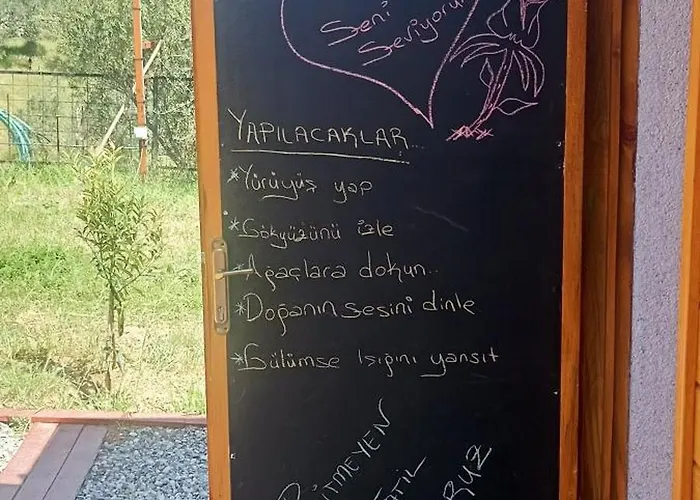 Seni
Seviyorum
YAPILACAKLAR...
*Yürüyüş yap
*Gökyüzünü izle
*Ağaçlara dokun..
*Doğanın sesini dinle
*Gülümse Işığını yansıt